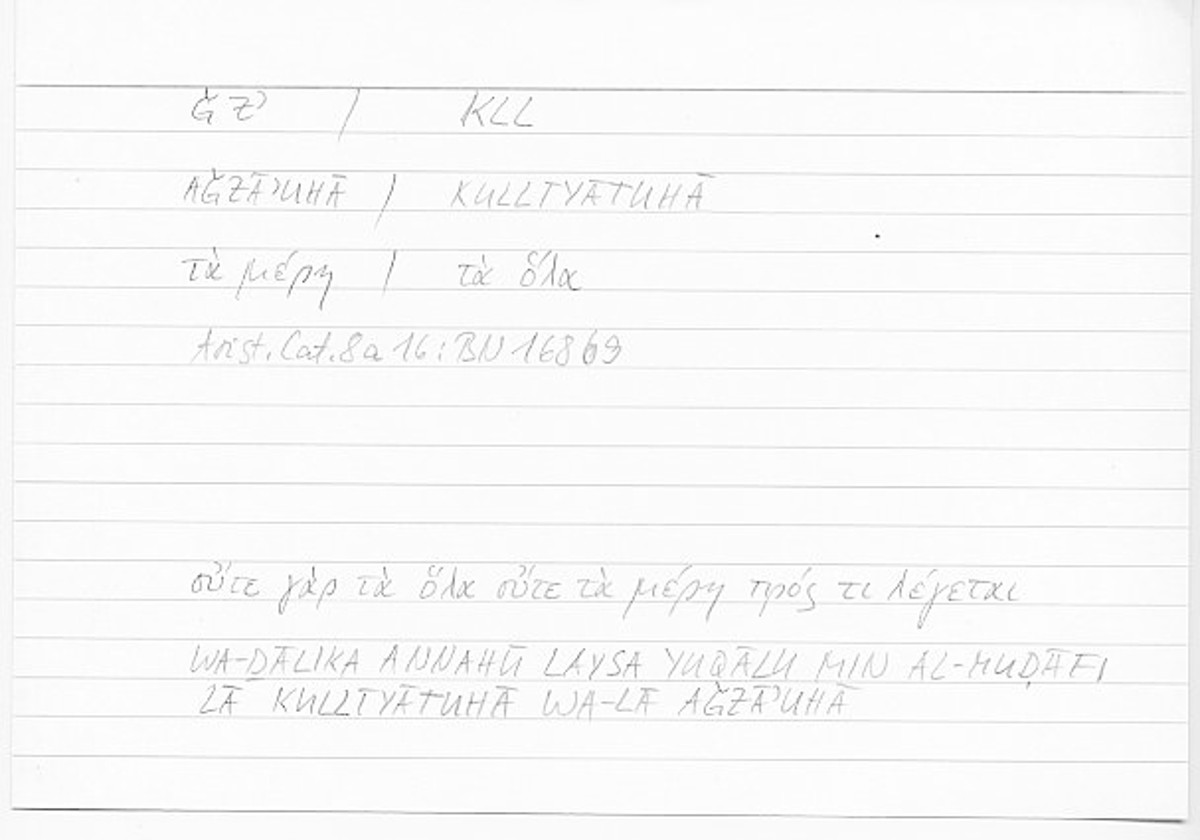 ǦZʾ / KLL
AǦZĀʾUHĀ / KULLĪYĀTUHĀ
τὰ μέρη / τὰ ὅλα
Arist. Cat. 8a16: BN 16869
οὔτε γὰρ τὰ ὅλα οὔτε τὰ μέρη πρός τι λέγεται
WA-ḎĀLIKA ANNAHŪ LAYSA YUQĀLU MIN AL-MUḌĀFI
LĀ KULLĪYĀTUHĀ WA-LĀ AǦZĀʾUHĀ